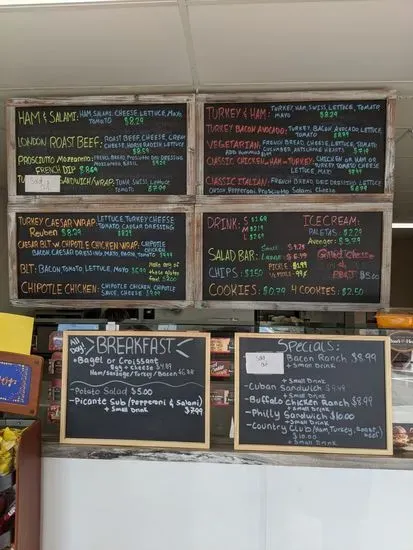 HAM & SALAMI: HAM, SALAMI, CHEESE, LETTUCE, MAYO
TOMATO $8.29
LONDON ROAST BEEF: ROAST BEEF, CHEESE, CREAM
CHEESE, HORSE RADISH, LETTUCE
$8.59
PROSCIUTTO MOZZARELLA: FRENCH BREAD, PROSCIUTTO, DRIE DRESSING
MOZZARELLA, BASIL $9.29
FRENCH DIP $8.69
SANDWICH/WRAP: TUNA, SWISS, LETTUCE
TOMATO $7.99
TURKEY & HAM: TURKEY, HAM, SWISS, LETTUCE, TOMATO,
MAYO $8.29
TURKEY BACON AVOCADO: TURKEY, BACON, AVOCADO, LETTUCE
TOMATO $8.99
VEGETARIAN: FRENCH BREAD, CHEESE, LETTUCE, TOMATO
CUCUMBER, ARTICHOKE HEARTS
CLASSIC CHICKEN, HAM OR TURKEY: CHICKEN OR HAM OR
TURKEY, TOMATO, CHEESE
LETTUCE, MAYO
CLASSIC ITALIAN: FRENCH BREAD, DRIE DRESSING, LETTUCE
ONION, PEPPERONI, PROSCIUTTO, SALAMI, CHEESE
TURKEY CAESAR WRAP: LETTUCE, TURKEY, CHEESE
TOMATO, CAESAR DRESSING
Reuben $8.29
CAESAR BLT W CHIPOTLE CHICKEN WRAP: CHIPOTLE
CHICKEN
BACON, CAESAR DRESSING, MAYO, BACON, TOMATO
BLT: BACON, TOMATO, LETTUCE, MAYO
Make any
of these
gluten
free
CHIPOTLE CHICKEN: CHICKEN, CHIPOTLE
SAUCE, CHEESE
DRINK: S
M $2.19
L
ICECREAM:
PALETAS: $2.79
Avenger: $3.79
SALAD BAR: Small
Large
Grilled Cheese
or
PB&J $5.00
CHIPS: $2.50
PICKLE
1/2 PICKLE
COOKIES: $0.79 4 COOKIES: $2.50
All
Day
BREAKFAST
-Bagel or Croissant
Egg + Cheese
Ham/Sausage/Turkey/Bacon
-Potato Salad $5.00
-Picante Sub (Pepperoni & Salami)
+ Small Drink $7.99
Specials:
Bacon Ranch $8.99
+ Small Drink
-Cuban Sandwich
+ Small Drink
-Buffalo Chicken Ranch $8.99
+ Small Drink
-Philly Sandwich $10.00
+ Small Drink
-Country Club (Ham, Turkey, Roast
beef)
$10.00
+ Small Drink